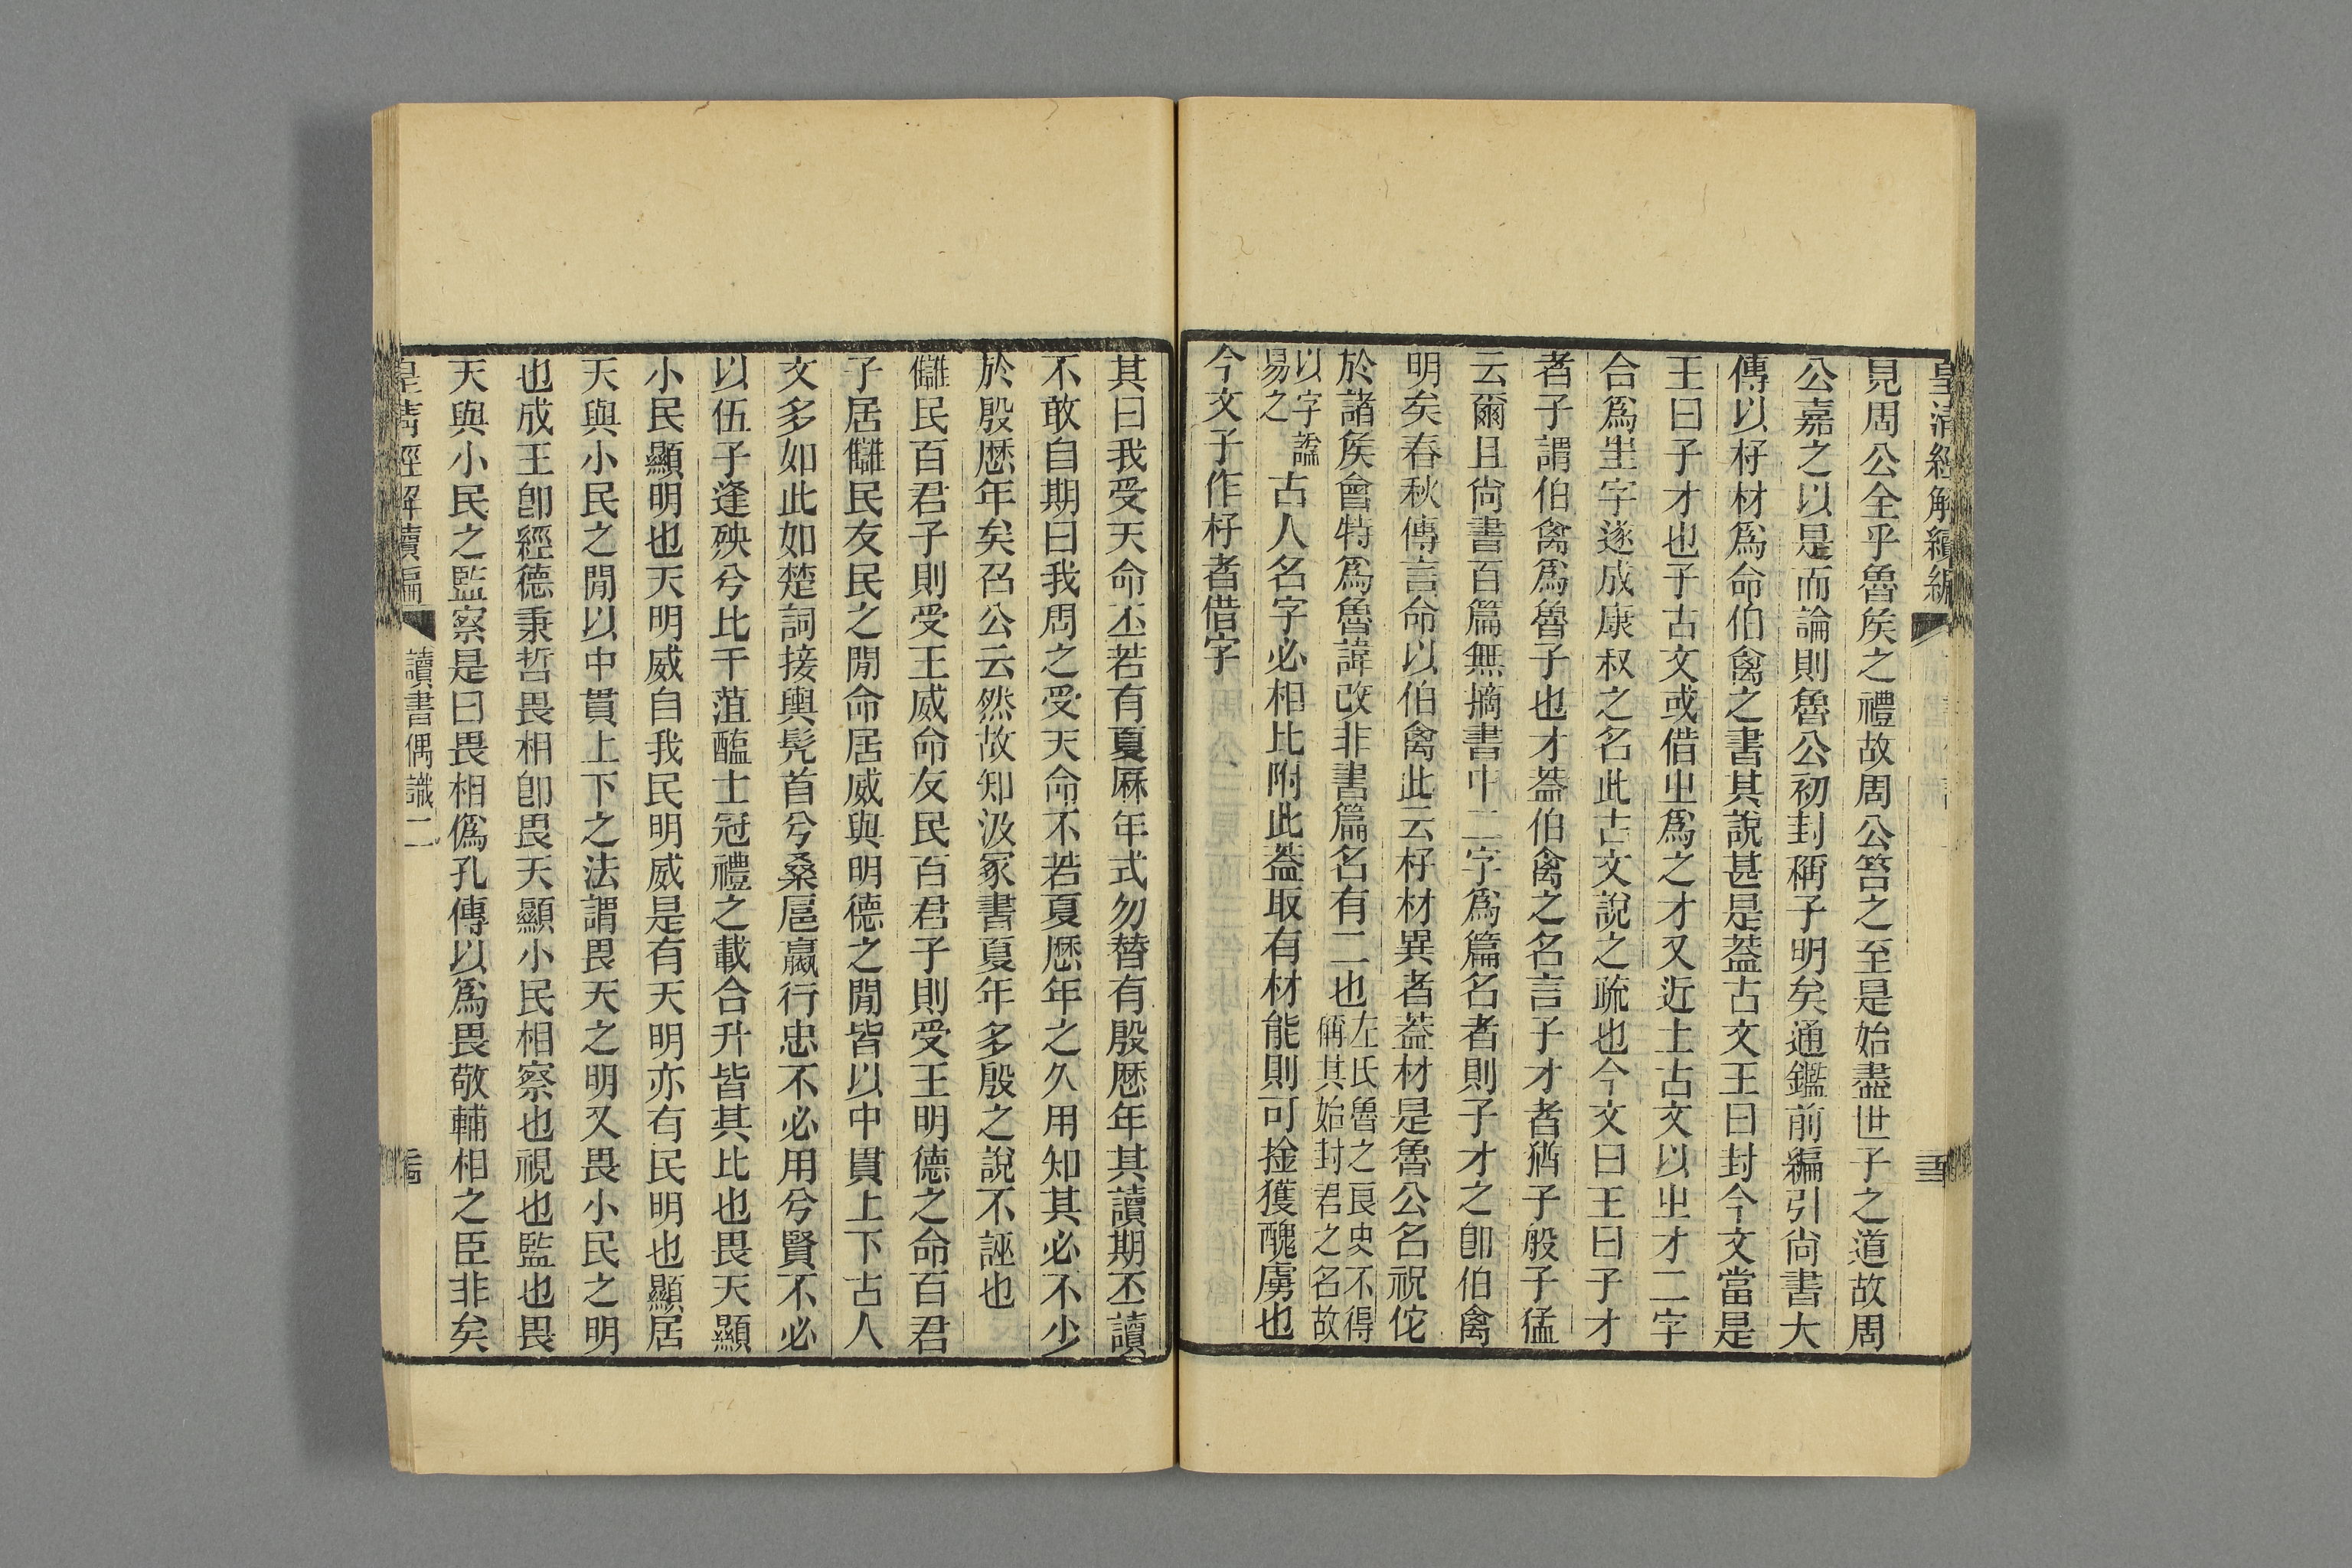 皇清經解續編
見周公全乎魯矦之禮故周公笞之至是始盡世子之道故周
公嘉之以是而論則魯公初封稱子明矣通鑑前編引尙書大
傳以杍材爲命伯禽之書其說甚是葢古文王曰封今文當是
王曰子才也子古文或借㞢爲之才又近土古文以㞢才二字
合爲坐字遂成康叔之名此古文說之疏也今文曰王曰子才
者子謂伯禽爲魯子也才葢伯禽之名言子才者猶子般子猛
云爾且尙書百篇無摘書中二字爲篇名者則子才之卽伯禽
明矣春秋傳言命以伯禽此云杍材異者葢材是魯公名祝佗
於諸矦會特爲魯諱改非書篇名有二也左氏魯之良史不得稱其始封君之名故
以字諡易之古人名字必相比附此葢取有材能則可捡獲醜虜也
今文子作杍者借字
其曰我受天命丕若有夏厤年式勿替有殷厯年其讀期丕讀
不敢自期曰我周之受天命不若夏厯年之久用知其必不少
於殷厯年矣召公云然故知汲冢書夏年多殷之說不誣也
讎民百君子則受王威命友民百君子則受王明德之命百君
子居讎民友民之閒命居威與明德之閒皆以中貫上下古人
文多如此如楚詞接輿髡首兮桑扈臝行忠不必用兮賢不必
以伍子逢殃兮比干菹醢士冠禮之載合升皆其比也畏天顯
小民顯明也天明威自我民明威是有天明亦有民明也顯居
天與小民之閒以中貫上下之法謂畏天之明又畏小民之明
也成王卽經德秉哲畏相卽畏天顯小民相察也視也監也畏
天與小民之監察是曰畏相僞孔傳以爲畏敬輔相之臣非矣
皇淸經解續編 讀書偶識二